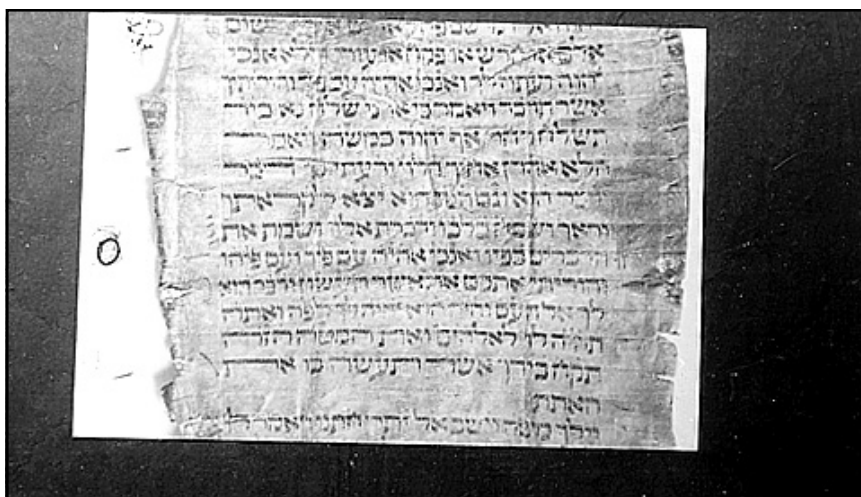 ישום
אלם או חרש או פקח או עור הלא אנכי
יהוה ועתה לך ואנכי אהיה עם פיך והוריתיך
אשר תדבר ויאמר בי אדני שלח נא ביד
תשלח ויחר אף יהוה במשה ויאמר
הלא אהרן אחיך הלוי ידעתי כי דבר
ידבר הוא וגם הנה הוא יצא לקראתך
וראך ושמח בלבו ודברת אליו ושמת את
הדברים בפיו ואנכי אהיה עם פיך ועם פיהו
והוריתי אתכם את אשר תעשון ודבר הוא
לך אל העם והיה הוא יהיה לך לפה ואתה
תהיה לו לאלהים ואת המטה הזה
תקח בידך אשר תעשה בו את
האתת
וילך משה וישב אל יתר חתנו ויאמר לו